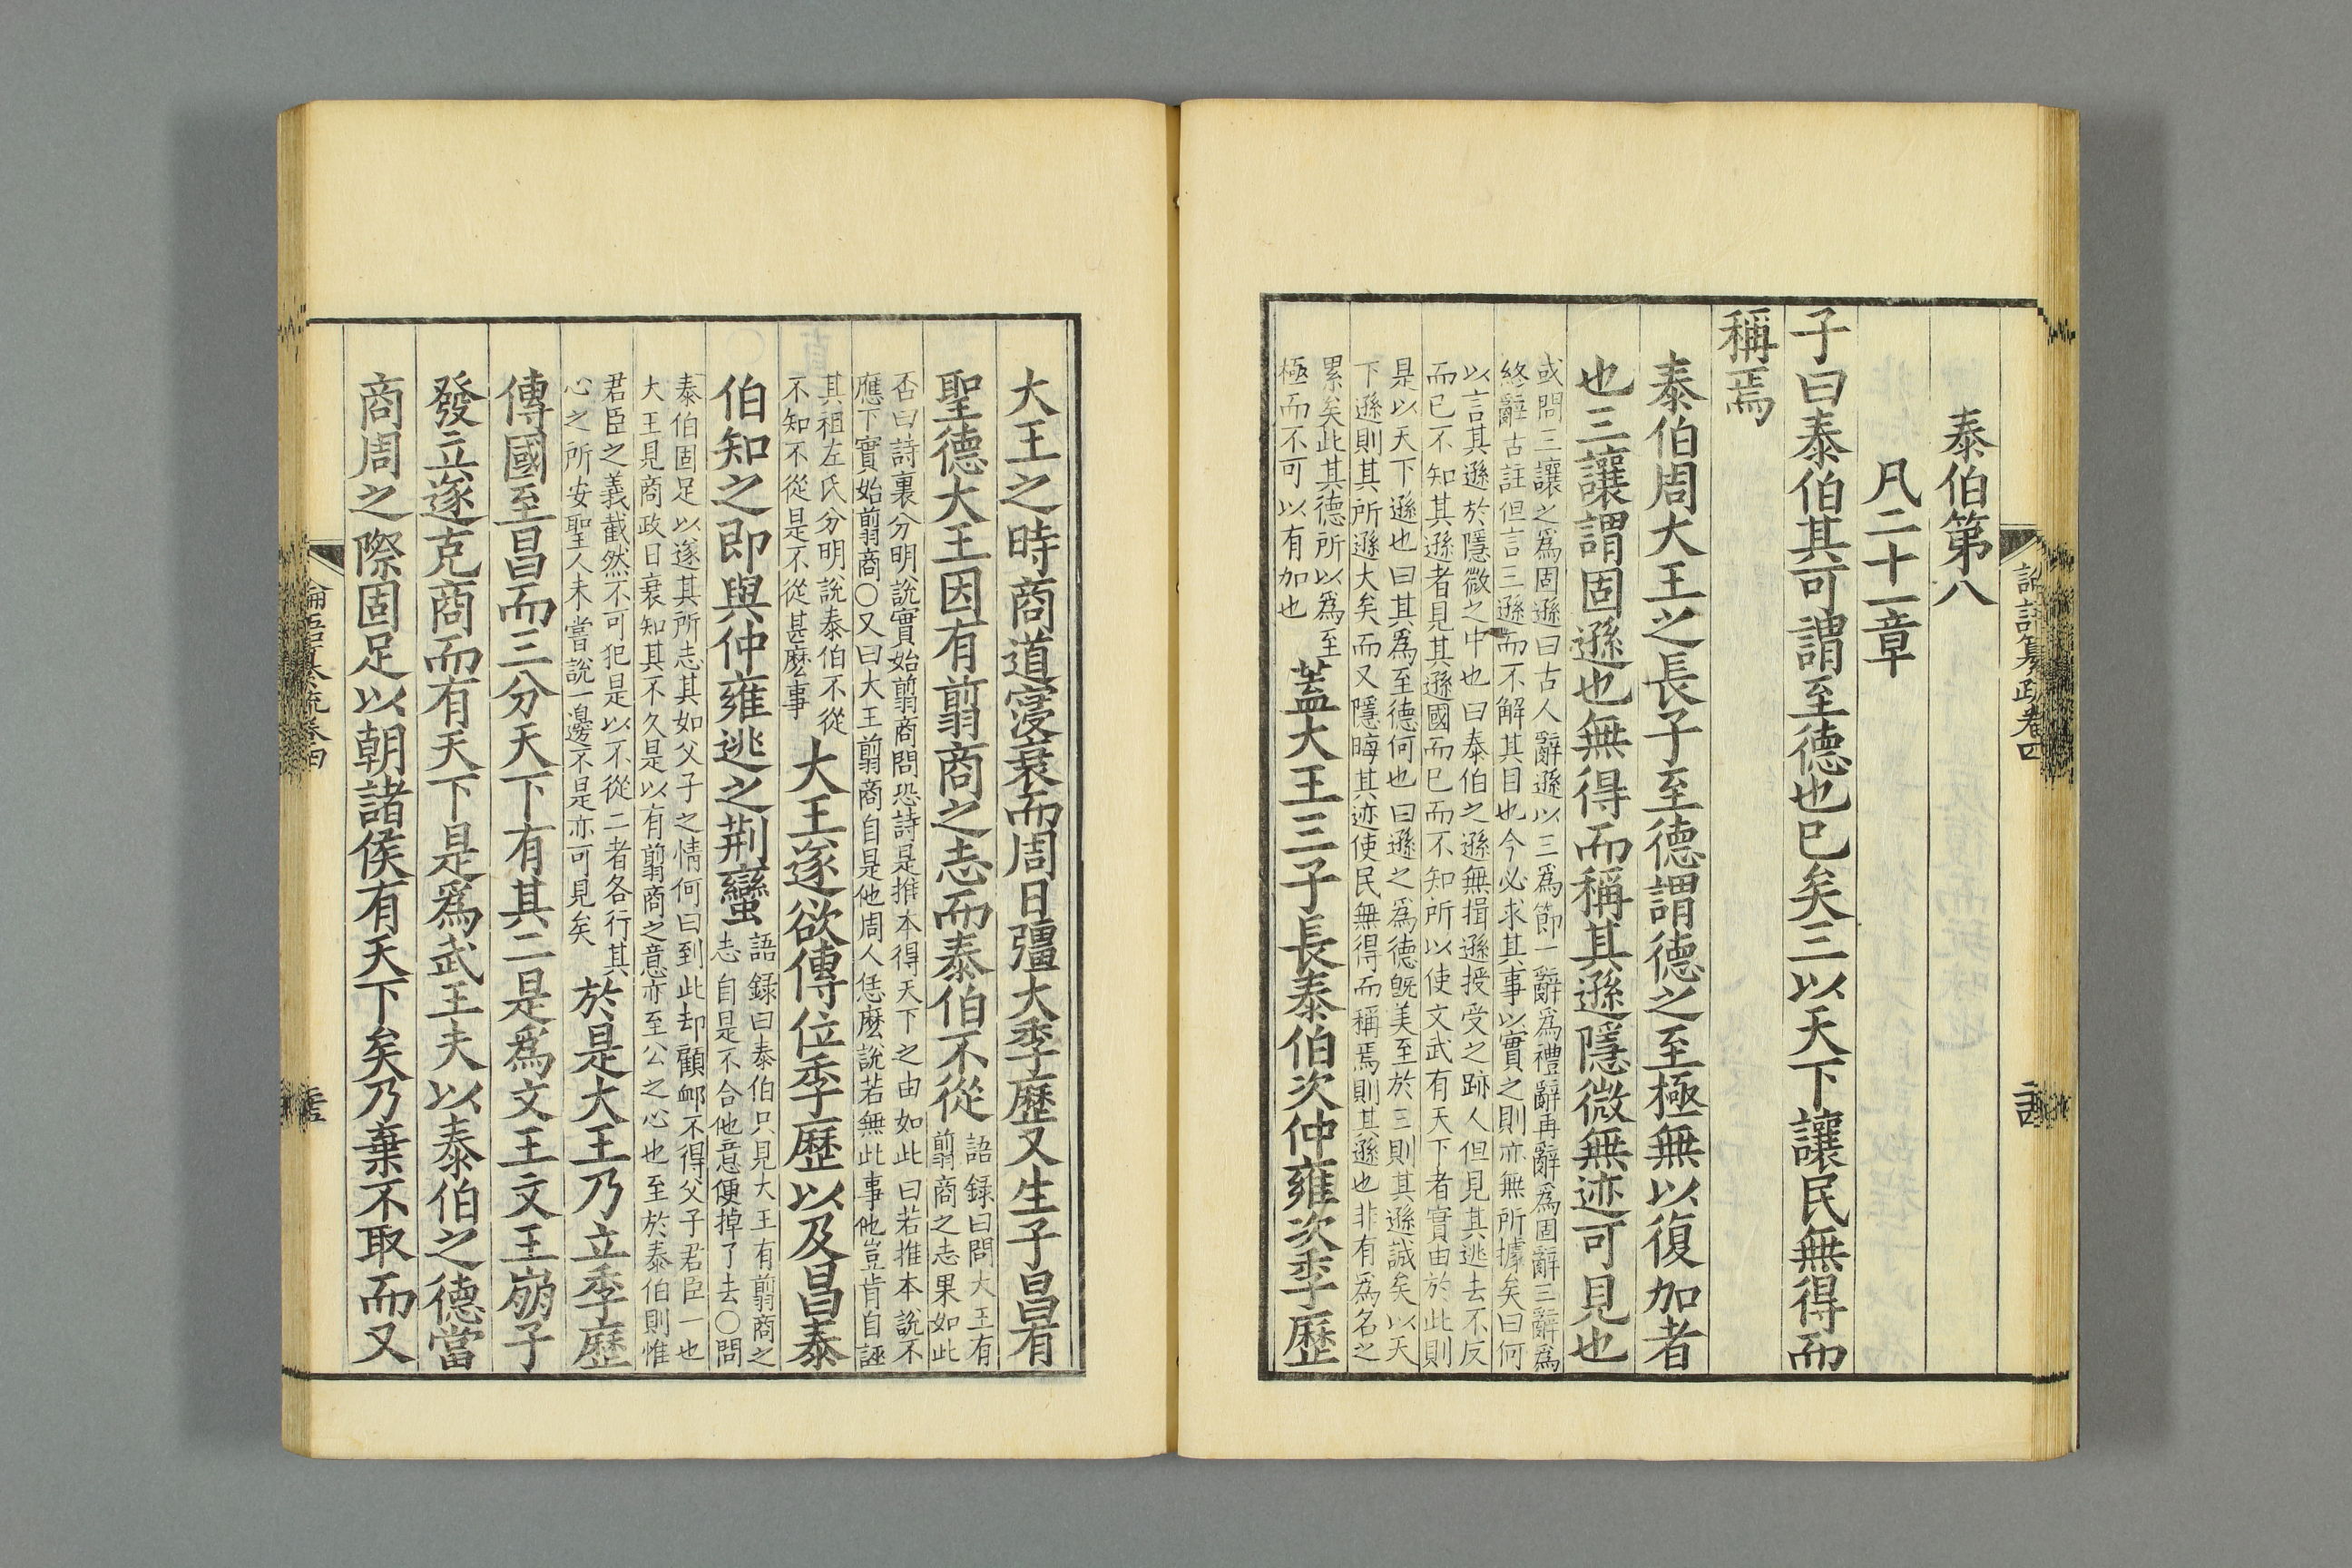 泰伯第八
凡二十一章
子曰泰伯其可謂至德也已矣三以天下讓民無得而
稱焉
泰伯周大王之長子至德謂德之至極無以復加者
也三讓謂固遜也無得而稱其遜隱微無迹可見也
或問三讓之爲固遜曰古人辭遜以三爲節一辭爲禮辭再辭爲固辭三辭爲
終辭古註但言三遜而不解其目也今必求其事以實之則亦無所據矣曰何
以言其遜於隱微之中也曰泰伯之遜無揖遜授受之跡人但見其逃去不反
而已不知其遜者見其遜國而已而不知所以使文武有天下者實由於此則
是以天下遜也曰其爲至德何也曰遜之爲德旣美至於三則其遜誠矣以天
下遜則其所遜大矣而又隱晦其迹使民無得而稱焉則其遜也非有爲名之
累矣此其德所以爲至
極而不可以有加也
蓋大王三子長泰伯次仲雍次季歷
論語纂疏卷四
大王之時商道寖衰而周日彊大季歷又生子昌有
聖德大王因有翦商之志而泰伯不從
語録曰問大王有
翦商之志果如此
否曰詩裏分明說實始翦商問恐詩是推本得天下之由如此曰若推本說不
應下實始翦商○又曰大王翦商自是他周人恁麽說若無此事他豈肯自誣
其祖左氏分明說泰伯不從
不知不從是不從甚麽事
大王遂欲傳位季歷以及昌泰
伯知之即與仲雍逃之荆蠻
語録曰泰伯只見大王有翦商之
志自是不合他意便掉了去○問
泰伯固足以遂其所志其如父子之情何曰到此却顧卹不得父子君臣一也
大王見商政日衰知其不久是以有翦商之意亦至公之心也至於泰伯則惟
君臣之義截然不可犯是以不從二者各行其
心之所安聖人未嘗說一邊不是亦可見矣
於是大王乃立季歷
傳國至昌而三分天下有其二是爲文王文王崩子
發立遂克商而有天下是爲武王夫以泰伯之德當
商周之際固足以朝諸侯有天下矣乃棄不取而又
論語纂疏卷四